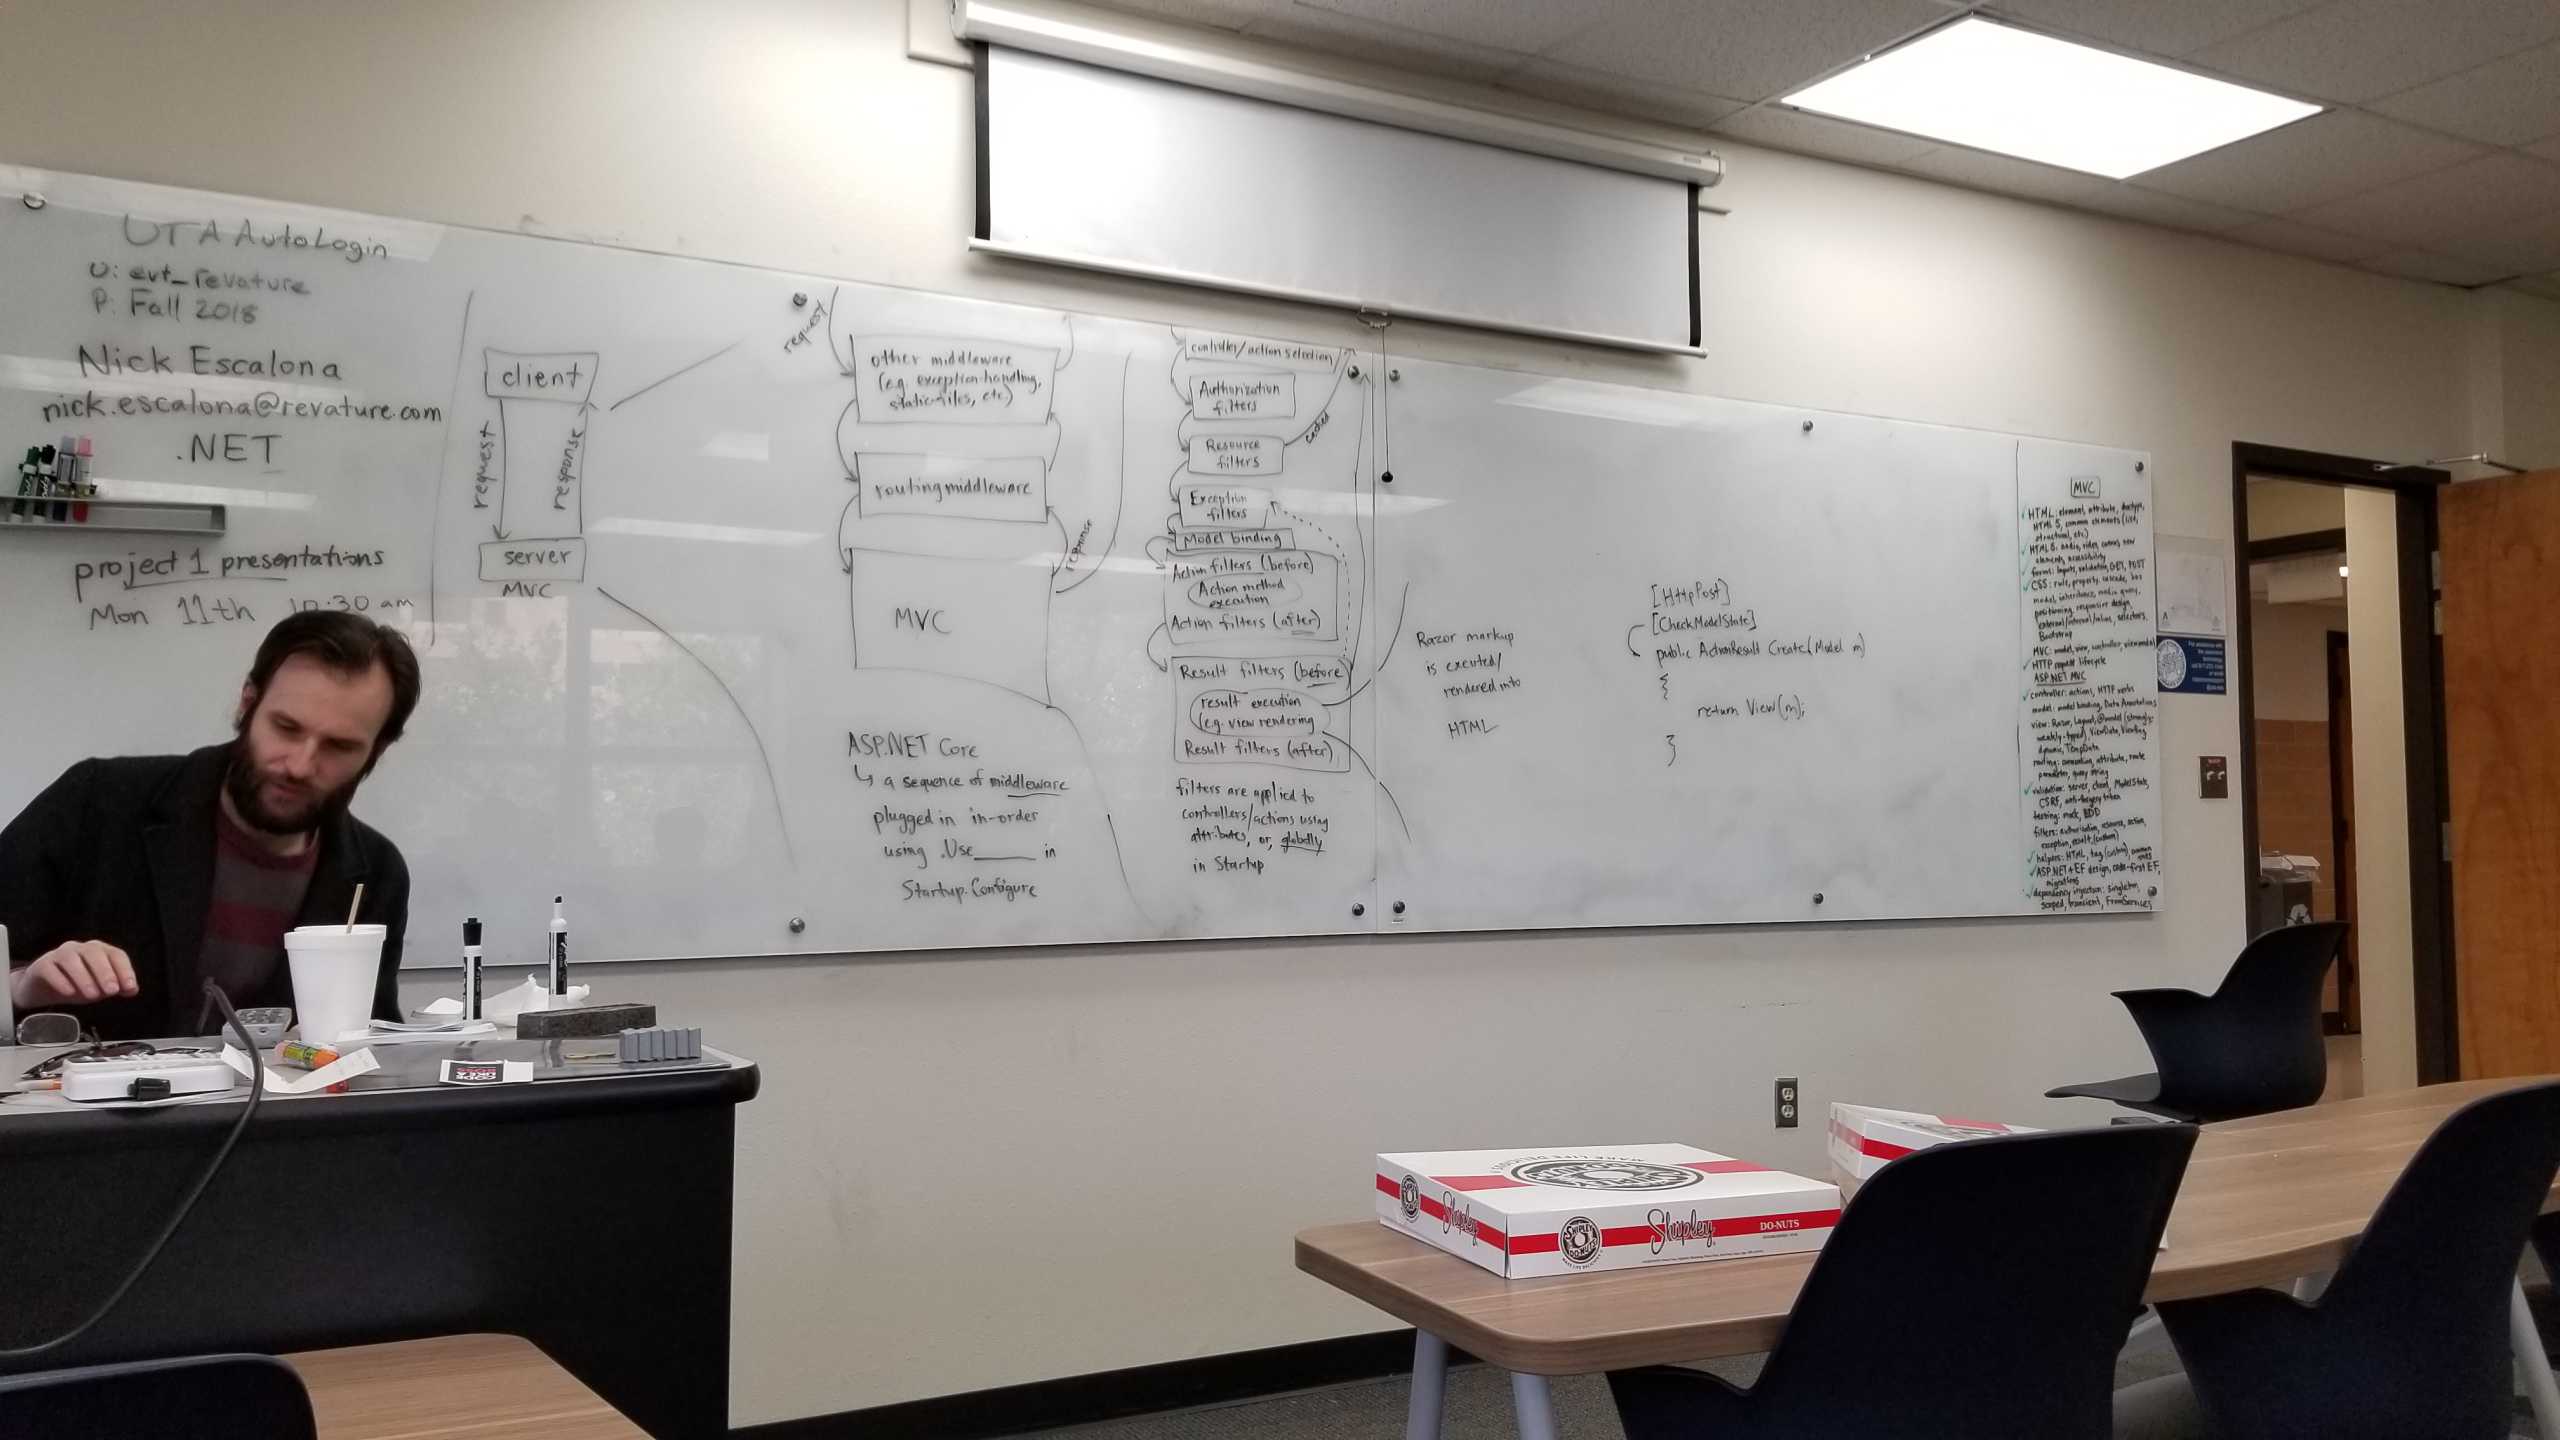 UTA AutoLogin
U: evt_revature
P: Fall 2018
Nick Escalona
nick.escalona@revature.com
.NET
project 1 presentations
Mon 11th 10:30 am
client
request
response
server
MVC
request
other middleware
(e.g. exception-handling,
static files, etc)
routing middleware
MVC
response
ASP.NET Core
↳ a sequence of middleware
plugged in in-order
using .Use_____ in
Startup.Configure
controller/action selection
Authorization
filters
Resource
filters
cached
Exception
filters
Model binding
Action filters (before)
Action method
execution
Action filters (after)
Result filters (before)
result execution
(e.g. view rendering
Result filters (after)
filters are applied to
controllers/actions using
attributes, or, globally
in Startup
Razor markup
is executed/
rendered into
HTML
[HttpPost]
[CheckModelState]
public ActionResult Create(Model m)
{
return View(m);
}
MVC
✓ HTML: element, attribute, doctype,
HTML 5, common elements (list,
structural, etc.)
✓ HTML 5: audio, video, canvas, new
elements, accessibility
✓ forms: inputs, validation, GET, POST
✓ CSS: rule, property, cascade, box
model, inheritance, media query,
positioning, responsive design,
external/internal/inline, selectors,
Bootstrap
MVC: model, view, controller, viewmodel
✓ HTTP request lifecycle
ASP.NET MVC
✓ controller: actions, HTTP verbs
model: model binding, Data Annotations
view: Razor, Layout, @model (strongly-
weakly-typed), ViewData, ViewBag
dynamic, TempData
routing: convention, attribute, route
parameter, query string
✓ validation: server, client, ModelState,
CSRF, anti-forgery token
testing: mock, BDD
filters: authorization, resource, action,
exception, result, (custom)
✓ helpers: HTML, tag (custom),
✓ ASP.NET + EF design, code-first EF,
migrations
✓ dependency injection: singleton,
scoped, transient, FromServices
CODE
LIKE A
BOSS
SHIPLEY
DO-NUTS
MAKE LIFE DELICIOUS
Shipley
SHIPLEY
DO-NUTS
Shipley
DO-NUTS